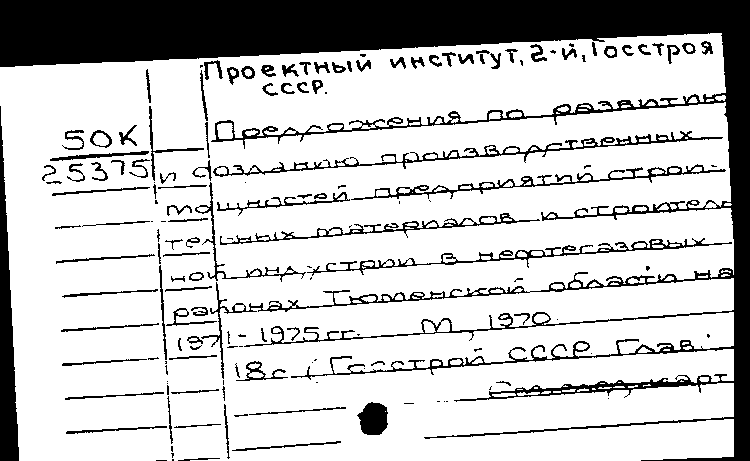 Проектный институт, 2-й, Госстроя
СССР.
50К
25375
Предложения по развитию
и созданию производственных
мощностей предприятий строи-
тельных материалов и строитель
ной индустрии в нефтегазовых
районах Тюменской области на
1971-1975гг. М, 1970
18с (Госстрой СССР Глав.
См. след. карт